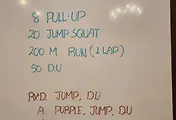 8 PULL-UP
20 JUMP SQUAT
200 M RUN (1 LAP)
50 D.U
RXD. JUMP, DU
A. PURPLE, JUMP, DU